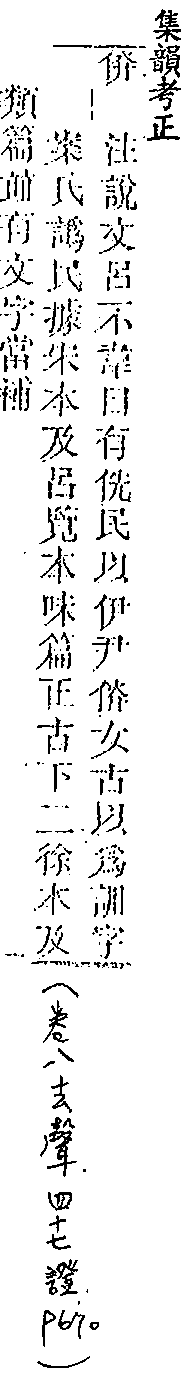 集韻考正
㑞 注說文呂不韋曰有侁民以伊尹㑞女古以爲訓字
案氏譌民據宋本及呂覽本味篇正古下二徐本及
類篇竝有文字當補
(卷八去聲四十七證 P670)